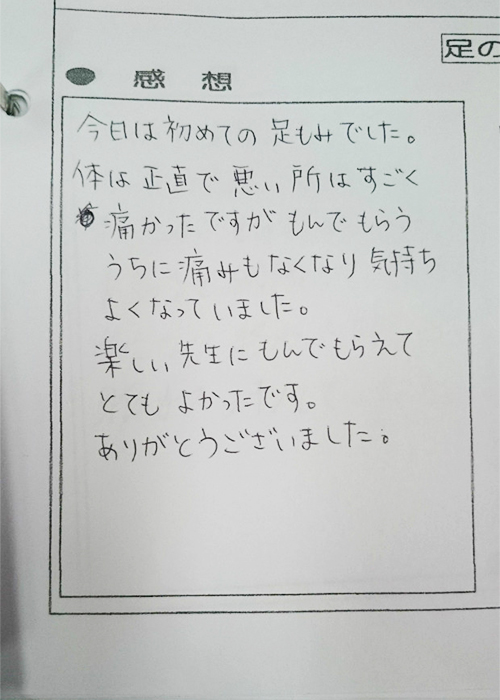 足の
● 感想
今日は初めての足もみでした。
体は正直で悪い所はすごく
痛かったですがもんでもらう
うちに痛みもなくなり気持ち
よくなっていました。
楽しい先生にもんでもらえて
とてもよかったです。
ありがとうございました。